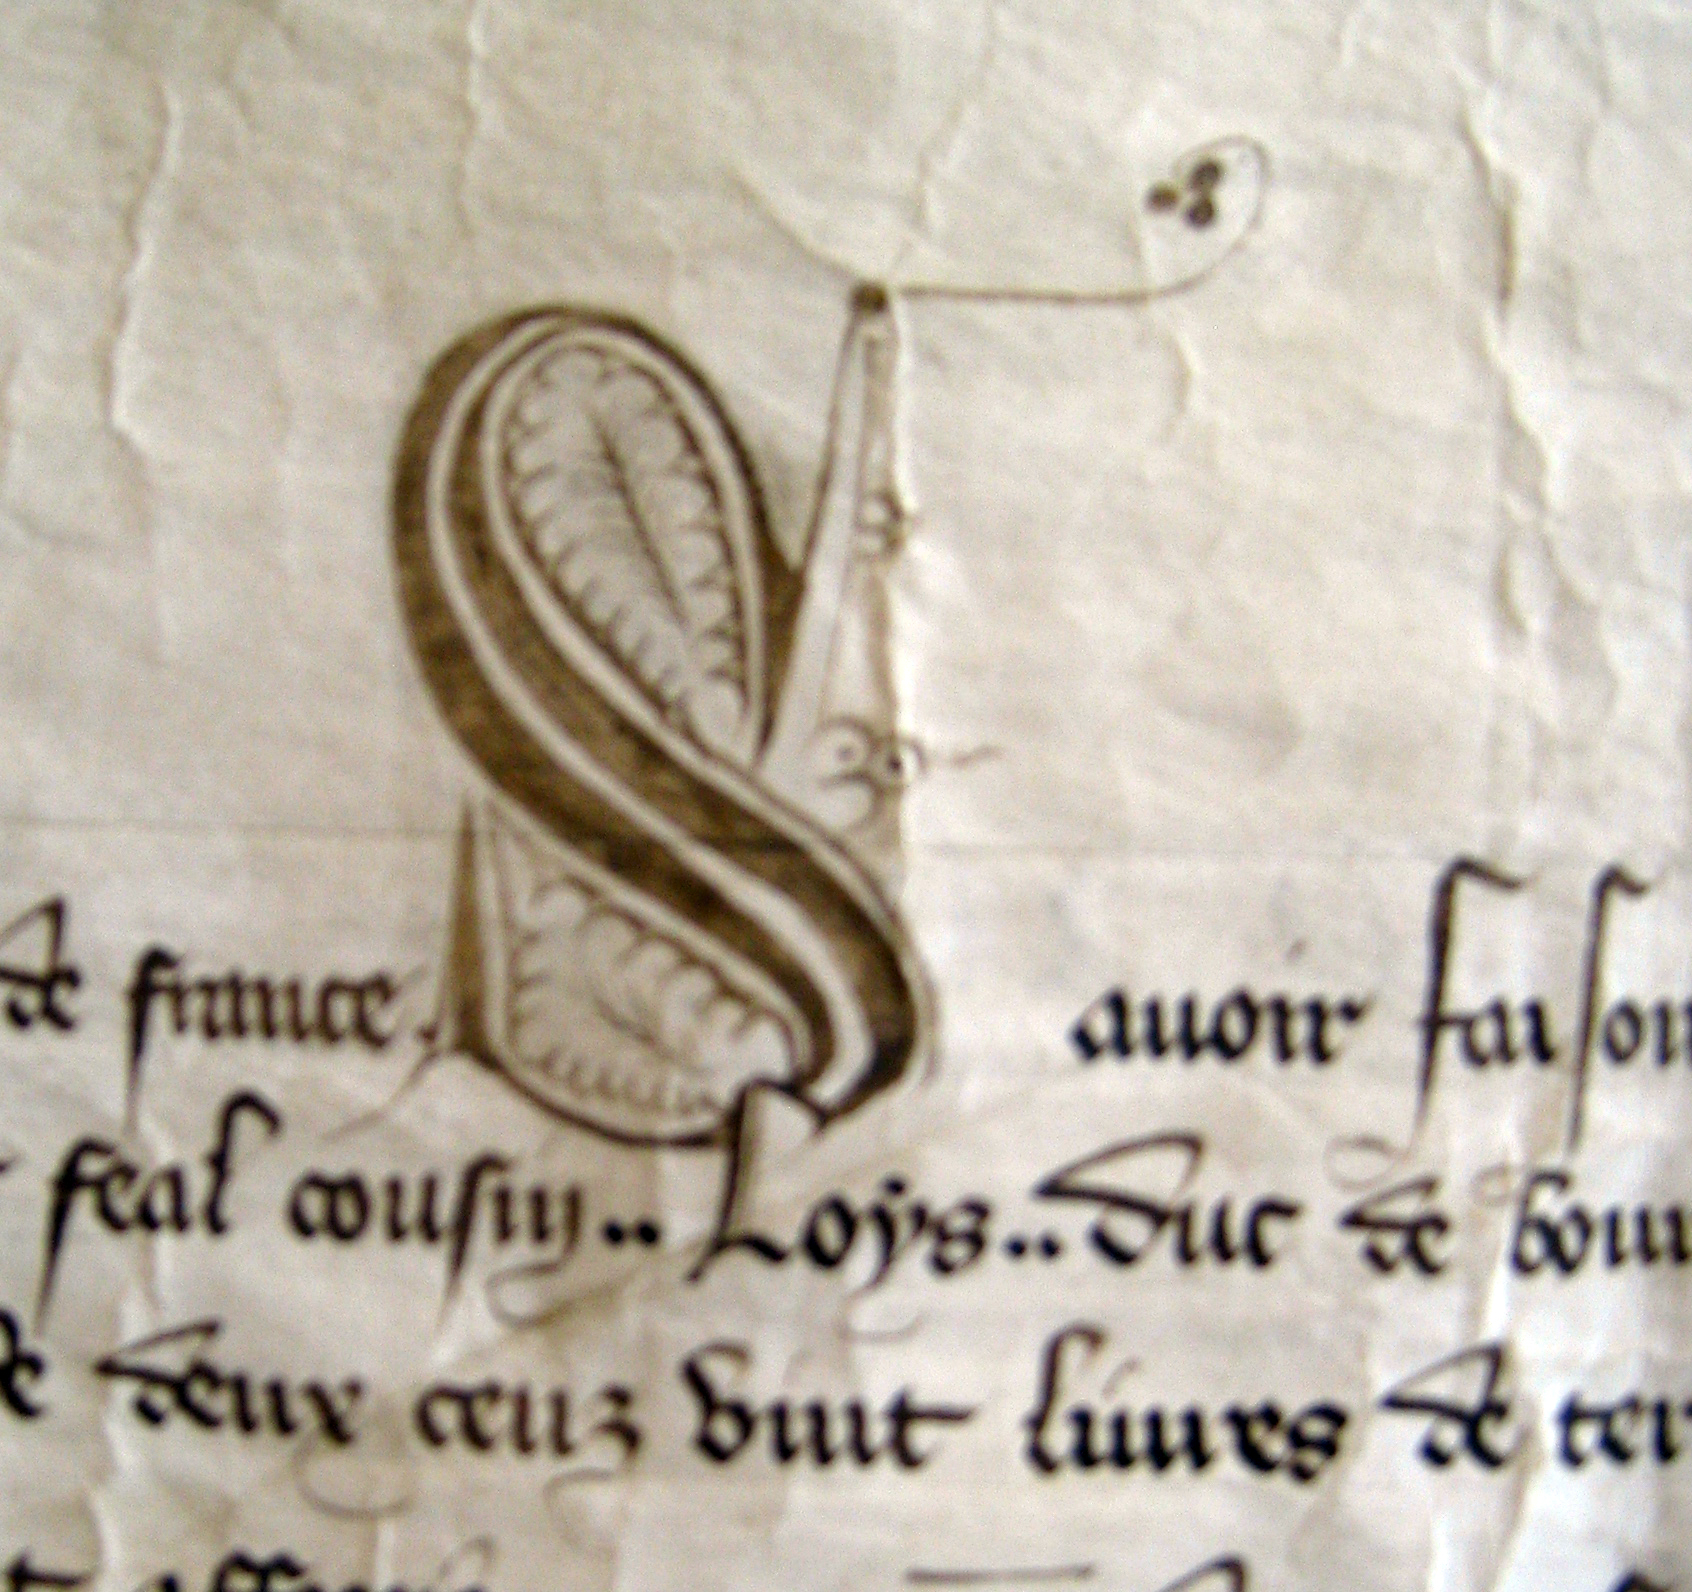 de france. S auoir faison
feal cousin.. Loys.. duc de bour
de deux cenz vint liures de ter